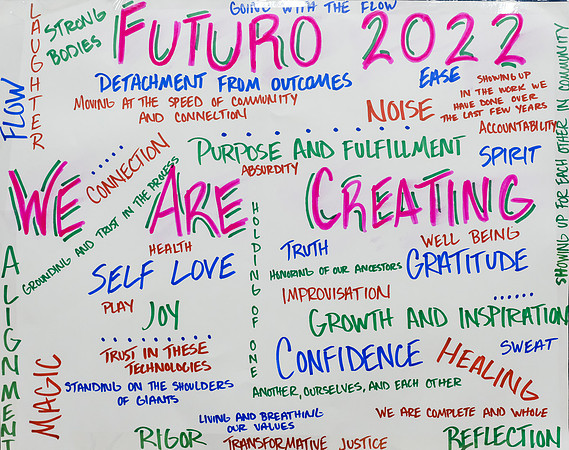 GOING WITH THE FLOW
LAUGHTER
STRONG
BODIES
FUTURO 2022
FLOW
DETACHMENT FROM OUTCOMES
EASE
SHOWING UP
IN THE WORK WE
HAVE DONE OVER
THE LAST FEW YEARS
MOVING AT THE SPEED OF COMMUNITY
AND CONNECTION
NOISE
ACCOUNTABILITY
CONNECTION
PURPOSE AND FULFILLMENT
SPIRIT
ABSURDITY
SHOWING UP FOR EACH OTHER IN COMMUNITY
WE ARE CREATING
GROUNDING AND TRUST IN THE PROCESS
HOLDING OF ONE
ANOTHER, OURSELVES, AND EACH OTHER
HEALTH
TRUTH
WELL BEING
SELF LOVE
HONORING OF OUR ANCESTORS
GRATITUDE
PLAY
IMPROVISATION
JOY
GROWTH AND INSPIRATION
ALIGNMENT
TRUST IN THESE
TECHNOLOGIES
CONFIDENCE
HEALING
SWEAT
MAGIC
STANDING ON THE SHOULDERS
OF GIANTS
LIVING AND BREATHING
OUR VALUES
WE ARE COMPLETE AND WHOLE
RIGOR
TRANSFORMATIVE JUSTICE
REFLECTION